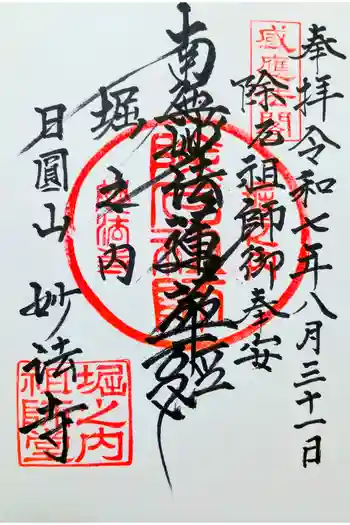 奉拝 令和七年八月三十一日
除厄祖師御奉安
南無妙法蓮華経
堀之内
日圓山 妙法寺
感應
堀之内
祖師堂